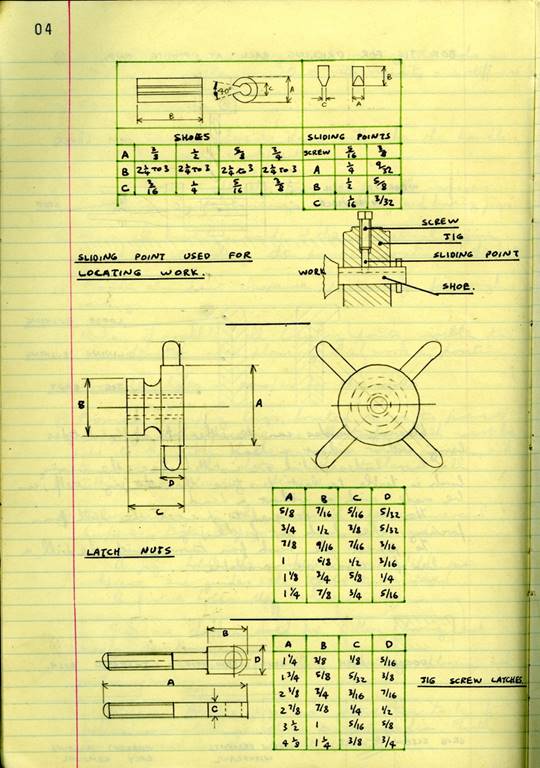 04
B
40°
C
A
C
A
B
SHOES
A 3/8 1/2 5/8 3/4
B 2 1/4 TO 3 2 1/4 TO 3 2 1/4 TO 3 2 1/4 TO 3
C 3/16 1/4 5/16 3/8
SLIDING POINTS
SCREW 5/16 3/8
A 1/4 9/32
B 1/2 5/8
C 1/16 3/32
SLIDING POINT USED FOR
LOCATING WORK.
SCREW
JIG
SLIDING POINT
WORK
SHOE.
B
A
D
C
LATCH NUTS
A B C D
5/8 7/16 5/16 5/32
3/4 1/2 3/8 5/32
7/8 9/16 7/16 3/16
1 5/8 1/2 3/16
1 1/8 3/4 5/8 1/4
1 1/4 7/8 3/4 5/16
B
D
A
C
A B C D
1 1/4 3/8 1/8 5/16
1 3/4 5/8 5/32 3/8
2 3/8 3/4 3/16 7/16
2 7/8 7/8 1/4 1/2
3 1/2 1 5/16 5/8
4 1/8 1 1/4 3/8 3/4
JIG SCREW LATCHES